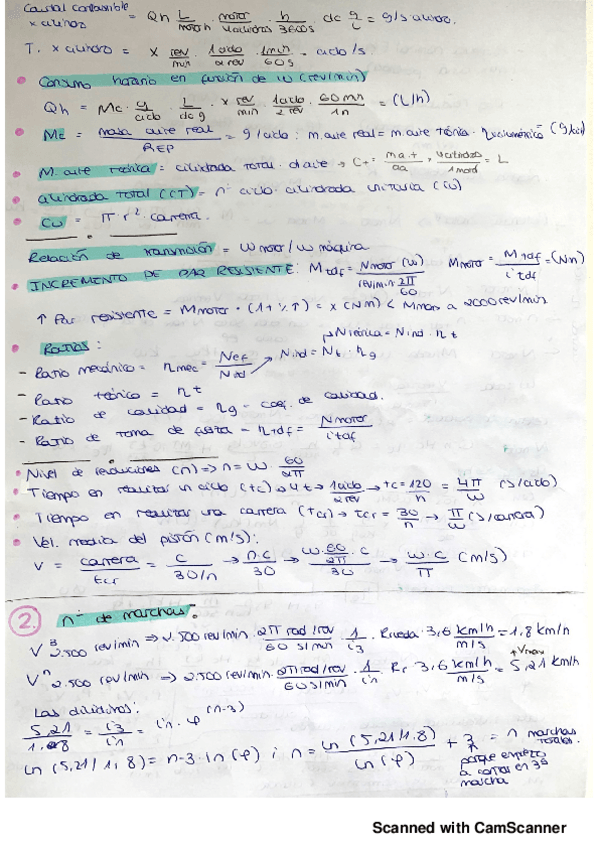 Caudal combustible x cilindro = Qh · L/motor h · motor/4cilindros · h/3600s · dc g/L = g/s cilindro.
T. x cilindro = x rev/min · 1 ciclo/2 rev · 1min/60s = ciclo/s
Consumo horario en función de w (rev/min)
Qh = Mc · g/ciclo · L/dc g · x rev/min · 1ciclo/2 rev · 60 min/1h = (L/h)
Mc = masa aire real/REP = g/ciclo : m.aire real = m.aire teórica · ηvolumétrico = (g/ciclo)
M. aire teórica = cilindrada total · d aire → Ct = ma.t/da · 4cilindros/1 motor = L
Cilindrada Total (CT) = nº cilo · cilindrada unitaria (Cu)
Cu = π r² · carrera.
Relación de transmisión = w motor / w máquina
INCREMENTO DE PAR RESISTENTE: Mtdf = Nmotor (w)/rev/min · 2π/60 Mmotor = Mtdf/itdf = (Nm)
↑ Par resistente = Mmotor · (1 + % ↑) = x (Nm) < Mmotor a 2000 rev/min
Ratios:
→ Nteórica = Nind · ηt
- Ratio mecánico = ηmec = Nef/Nind → Nind = Nt · ηg
- Ratio teórico = ηt
- Ratio de calidad = ηg = coef. de calidad.
- Ratio de toma de fuerza = ηtdf = Nmotor/itdf
Nivel de revoluciones (n) => n = w · 60/2π
Tiempo en realizar un ciclo (tc) → 4t → 1ciclo/2 rev → tc = 120/n = 4π/w (s/ciclo)
Tiempo en realizar una carrera (tcr) → tcr = 30/n → π/w (s/carrera)
Vel. media del pistón (m/s):
V = carrera/tcr = c/30/n → n·c/30 → w·60/2π · c/30 → w·c/π (m/s)
2. nº de marchas:
V³ 2.500 rev/min => 2.500 rev/min · 2π rad/rev/60 s/min · 1/i3 · Rrueda · 3,6 km/h/m/s = 1,8 km/h
Vⁿ 2.500 rev/min => 2.500 rev/min · 2π rad/rev/60 s/min · 1/in · Rr · 3,6 km/h/m/s = 5,21 km/h
Las dividimos:
5,21/1,8 = i3/in = in · φ (n-3)
ln (5,21/1,8) = n-3 · ln (φ) ; n = ln (5,21/1.8)/ln (φ) + 3 = n marchas totales.
porque empiezo a contar en 3ª marcha
Scanned with CamScanner